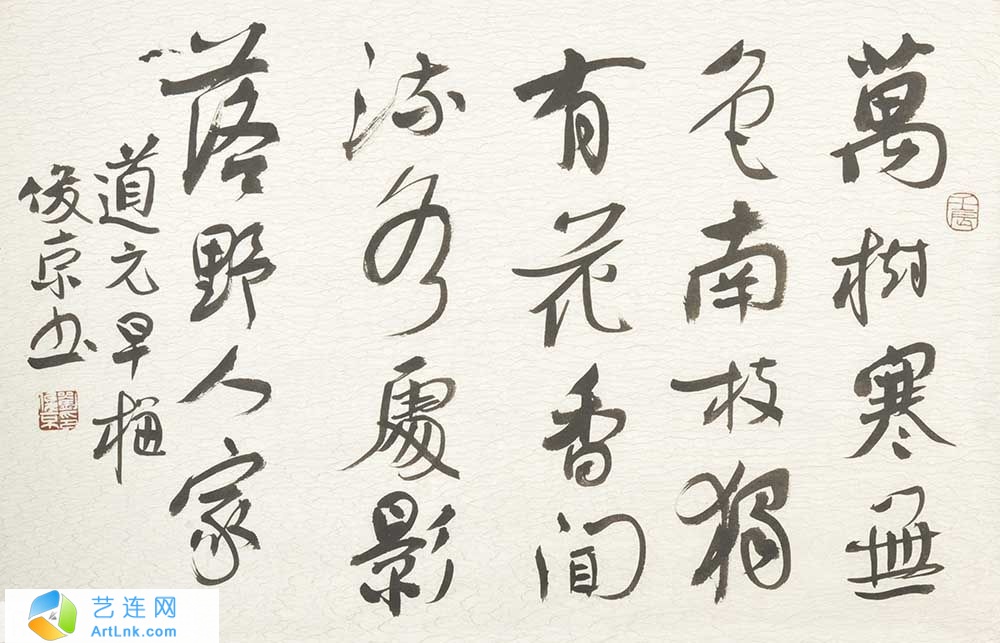 萬樹寒無
色南枝獨
有花香聞
流水處影
落野人家
道元早梅
俊京书
艺连网
ArtLnk.com